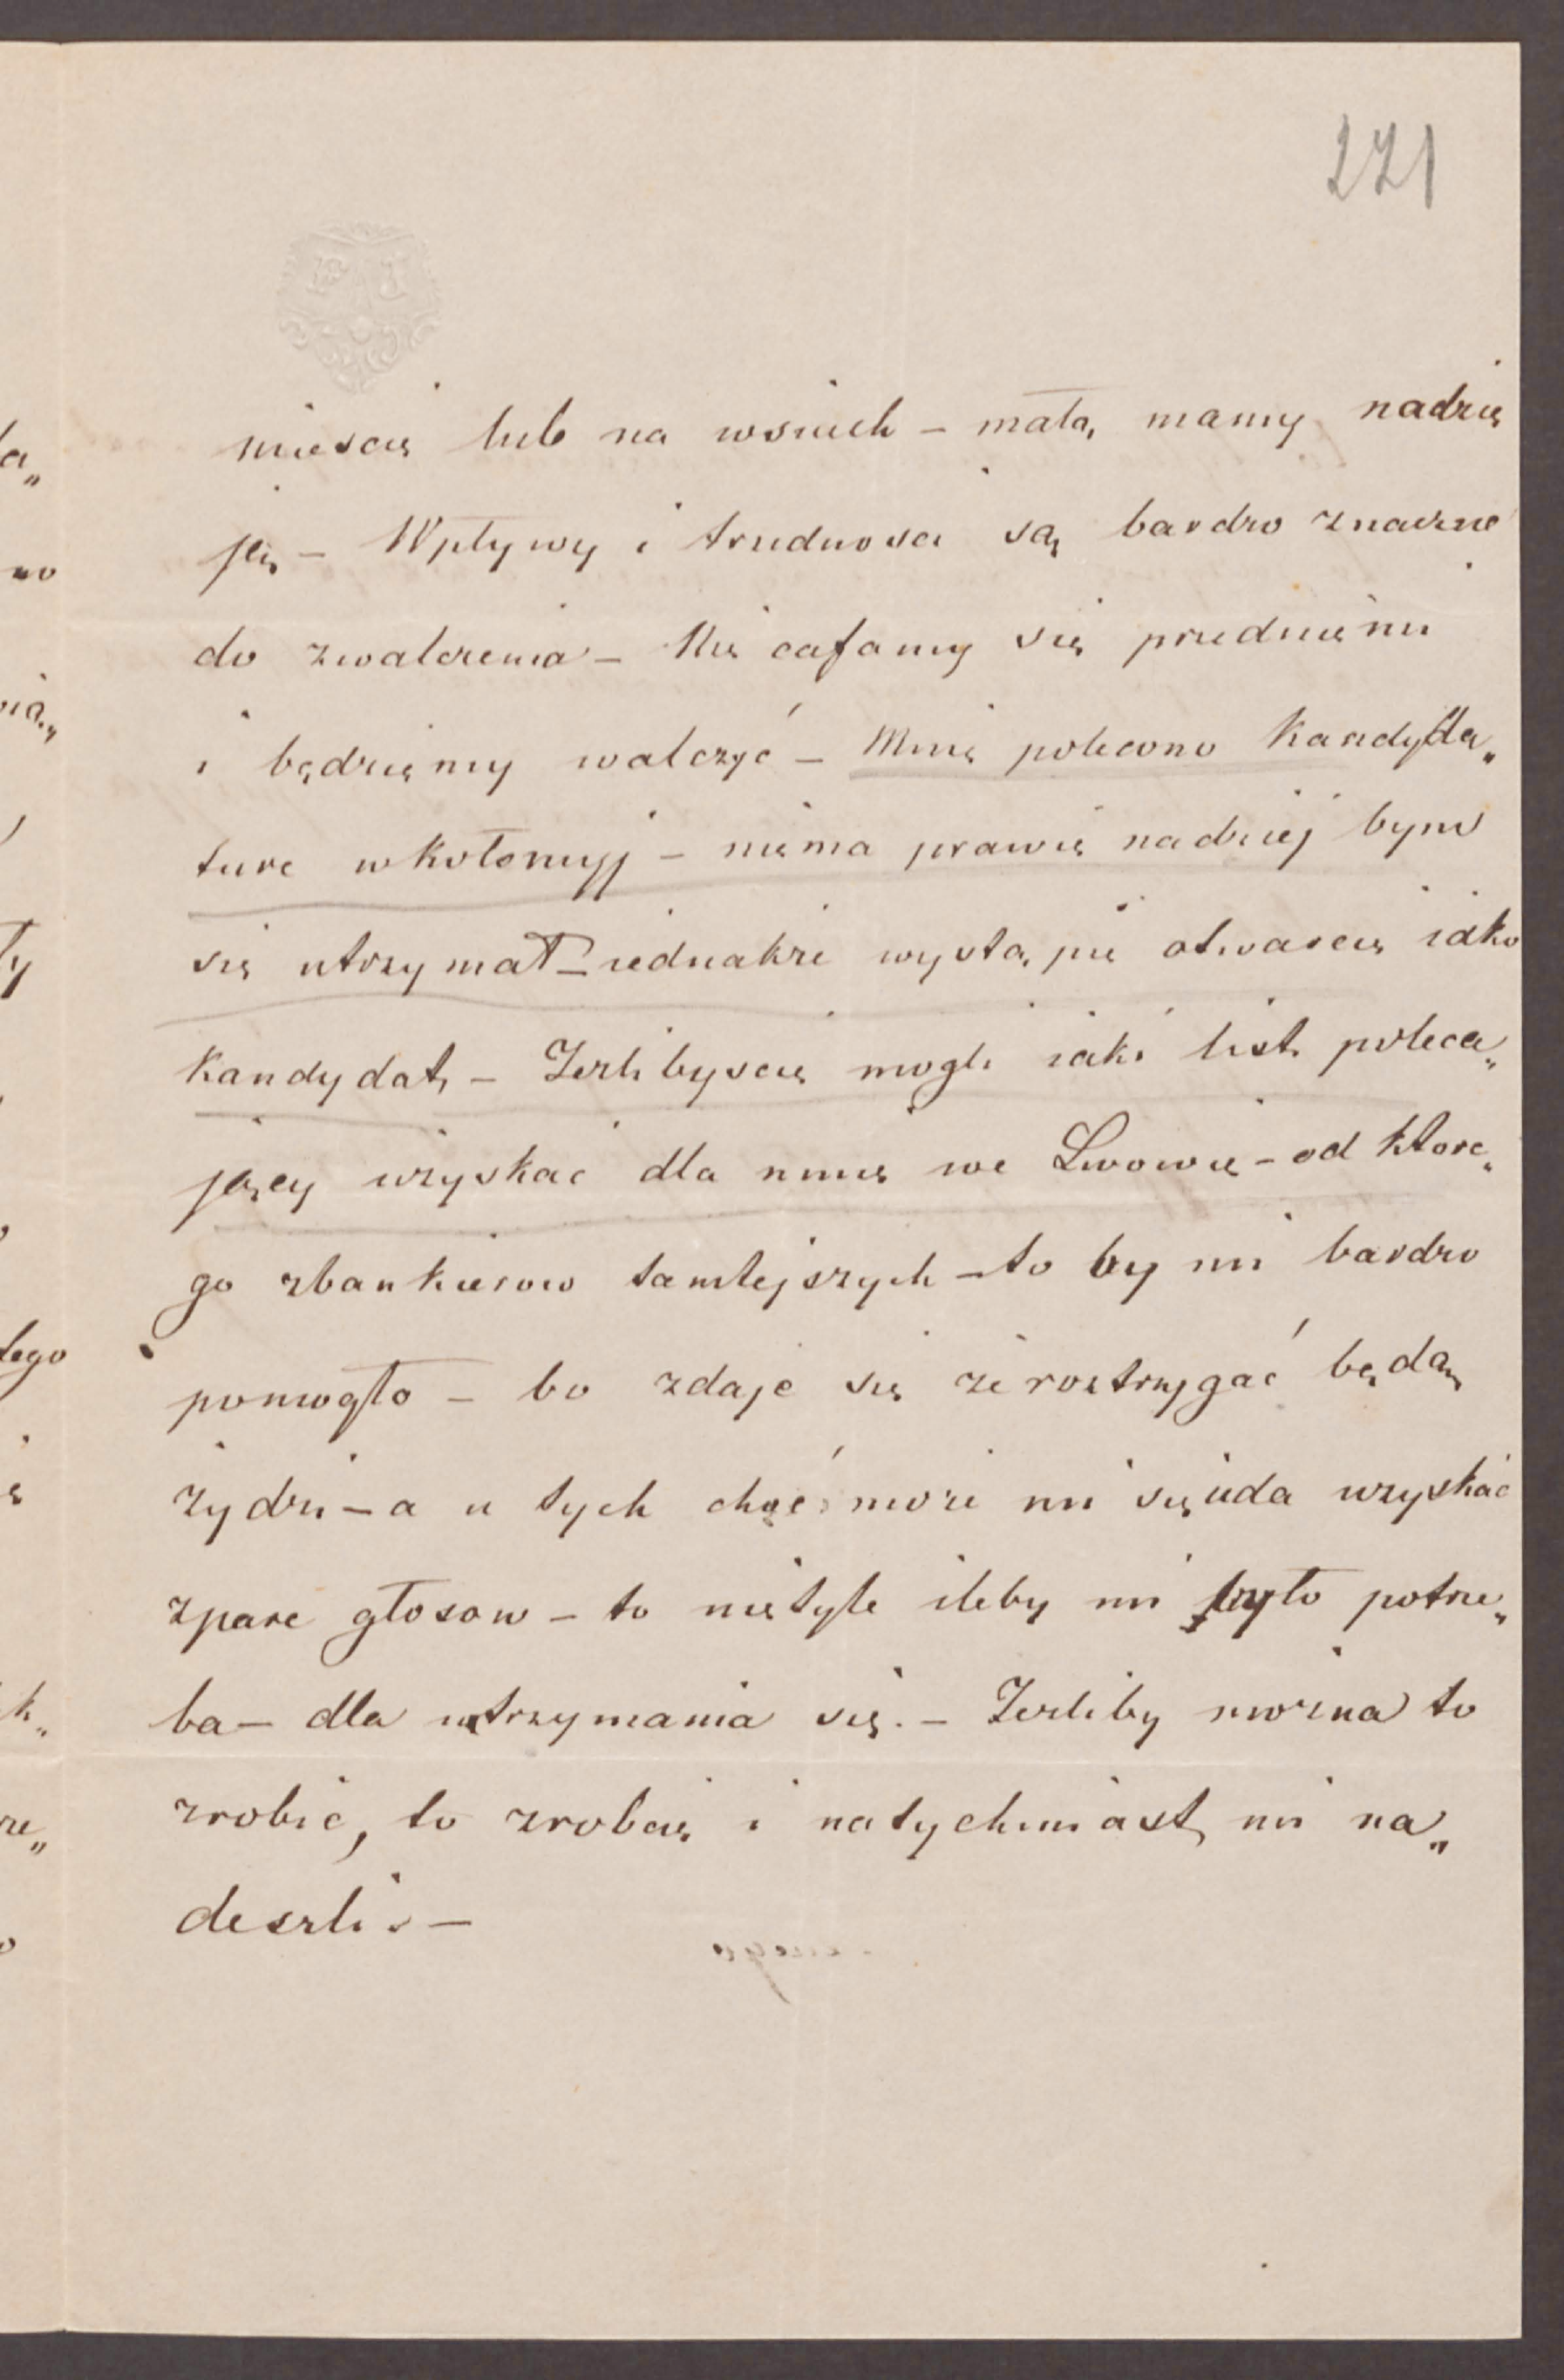 221
miescie lub na wsiach – małą mamy nadzie
ję – Wpływy i trudnosci są bardzo znaczne
do zwalczenia – Nie cafamy się przedniemi
i będziemy walczyć – Mnie polecono Kandyda„
ture w Kołomyji – niema prawie nadzieji bym
się utrzymał – iednakże wystąpie otwarcie iako
Kandydat, – Jeżlibyscie mogli iaki list poleca„
jący uzyskać dla mnie we Lwowie – od które„
go zbankierow tamtejszych – to by mi bardzo
pomogło – bo zdaje się że rostrzygać będą
żydzi – a u tych choć może mi się uda uzyskać
zpare głosow – to nietyle ileby mi było potrze„
ba – dla utrzymania się. – Jeżliby można to
zrobić, to zrobcie i natychmiast mi na„
deszli. –
la„
no
nią„
ły
tego
k„
rze„